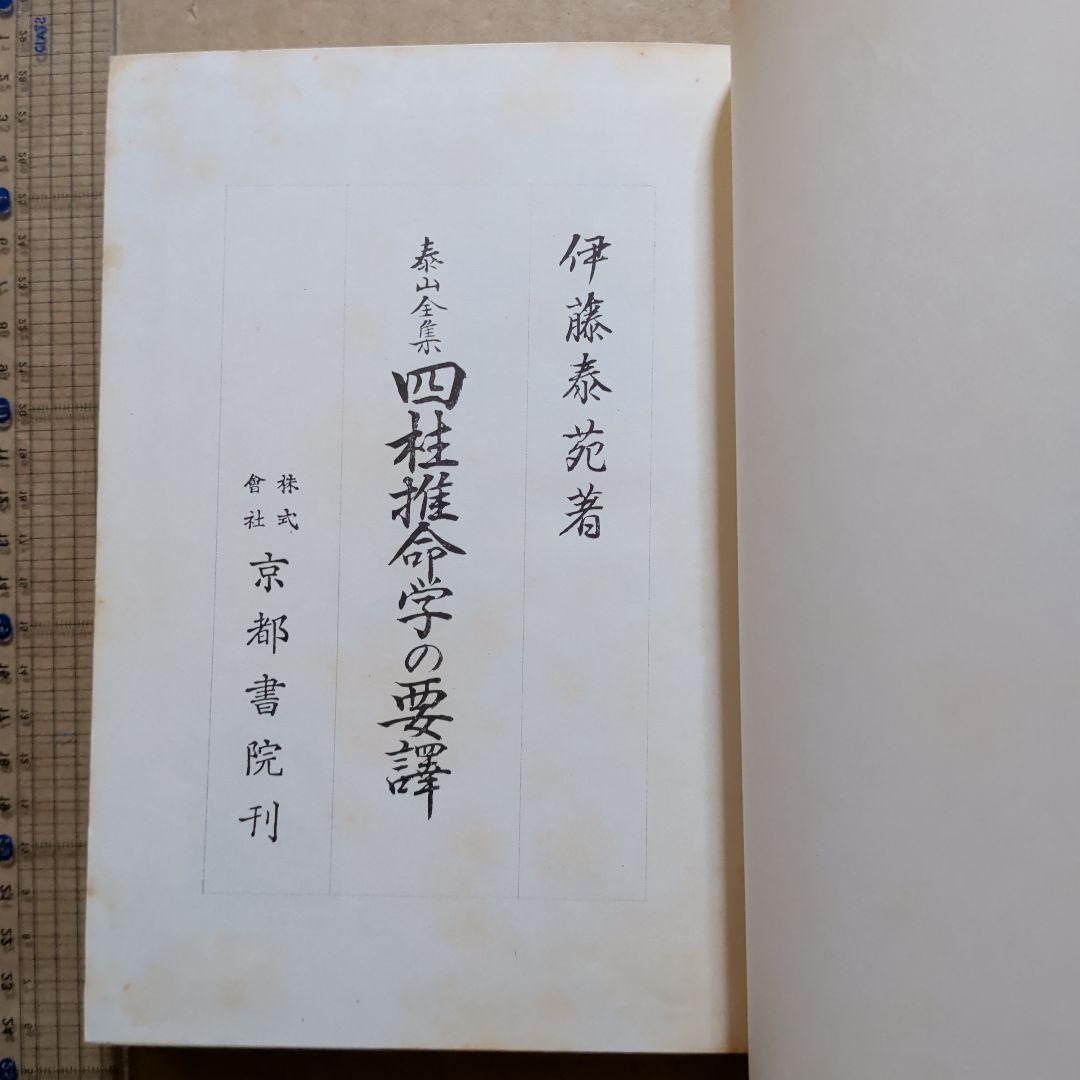 伊藤泰苑著
泰山全集
四柱推命学の要譯
株式
會社
京都書院刊